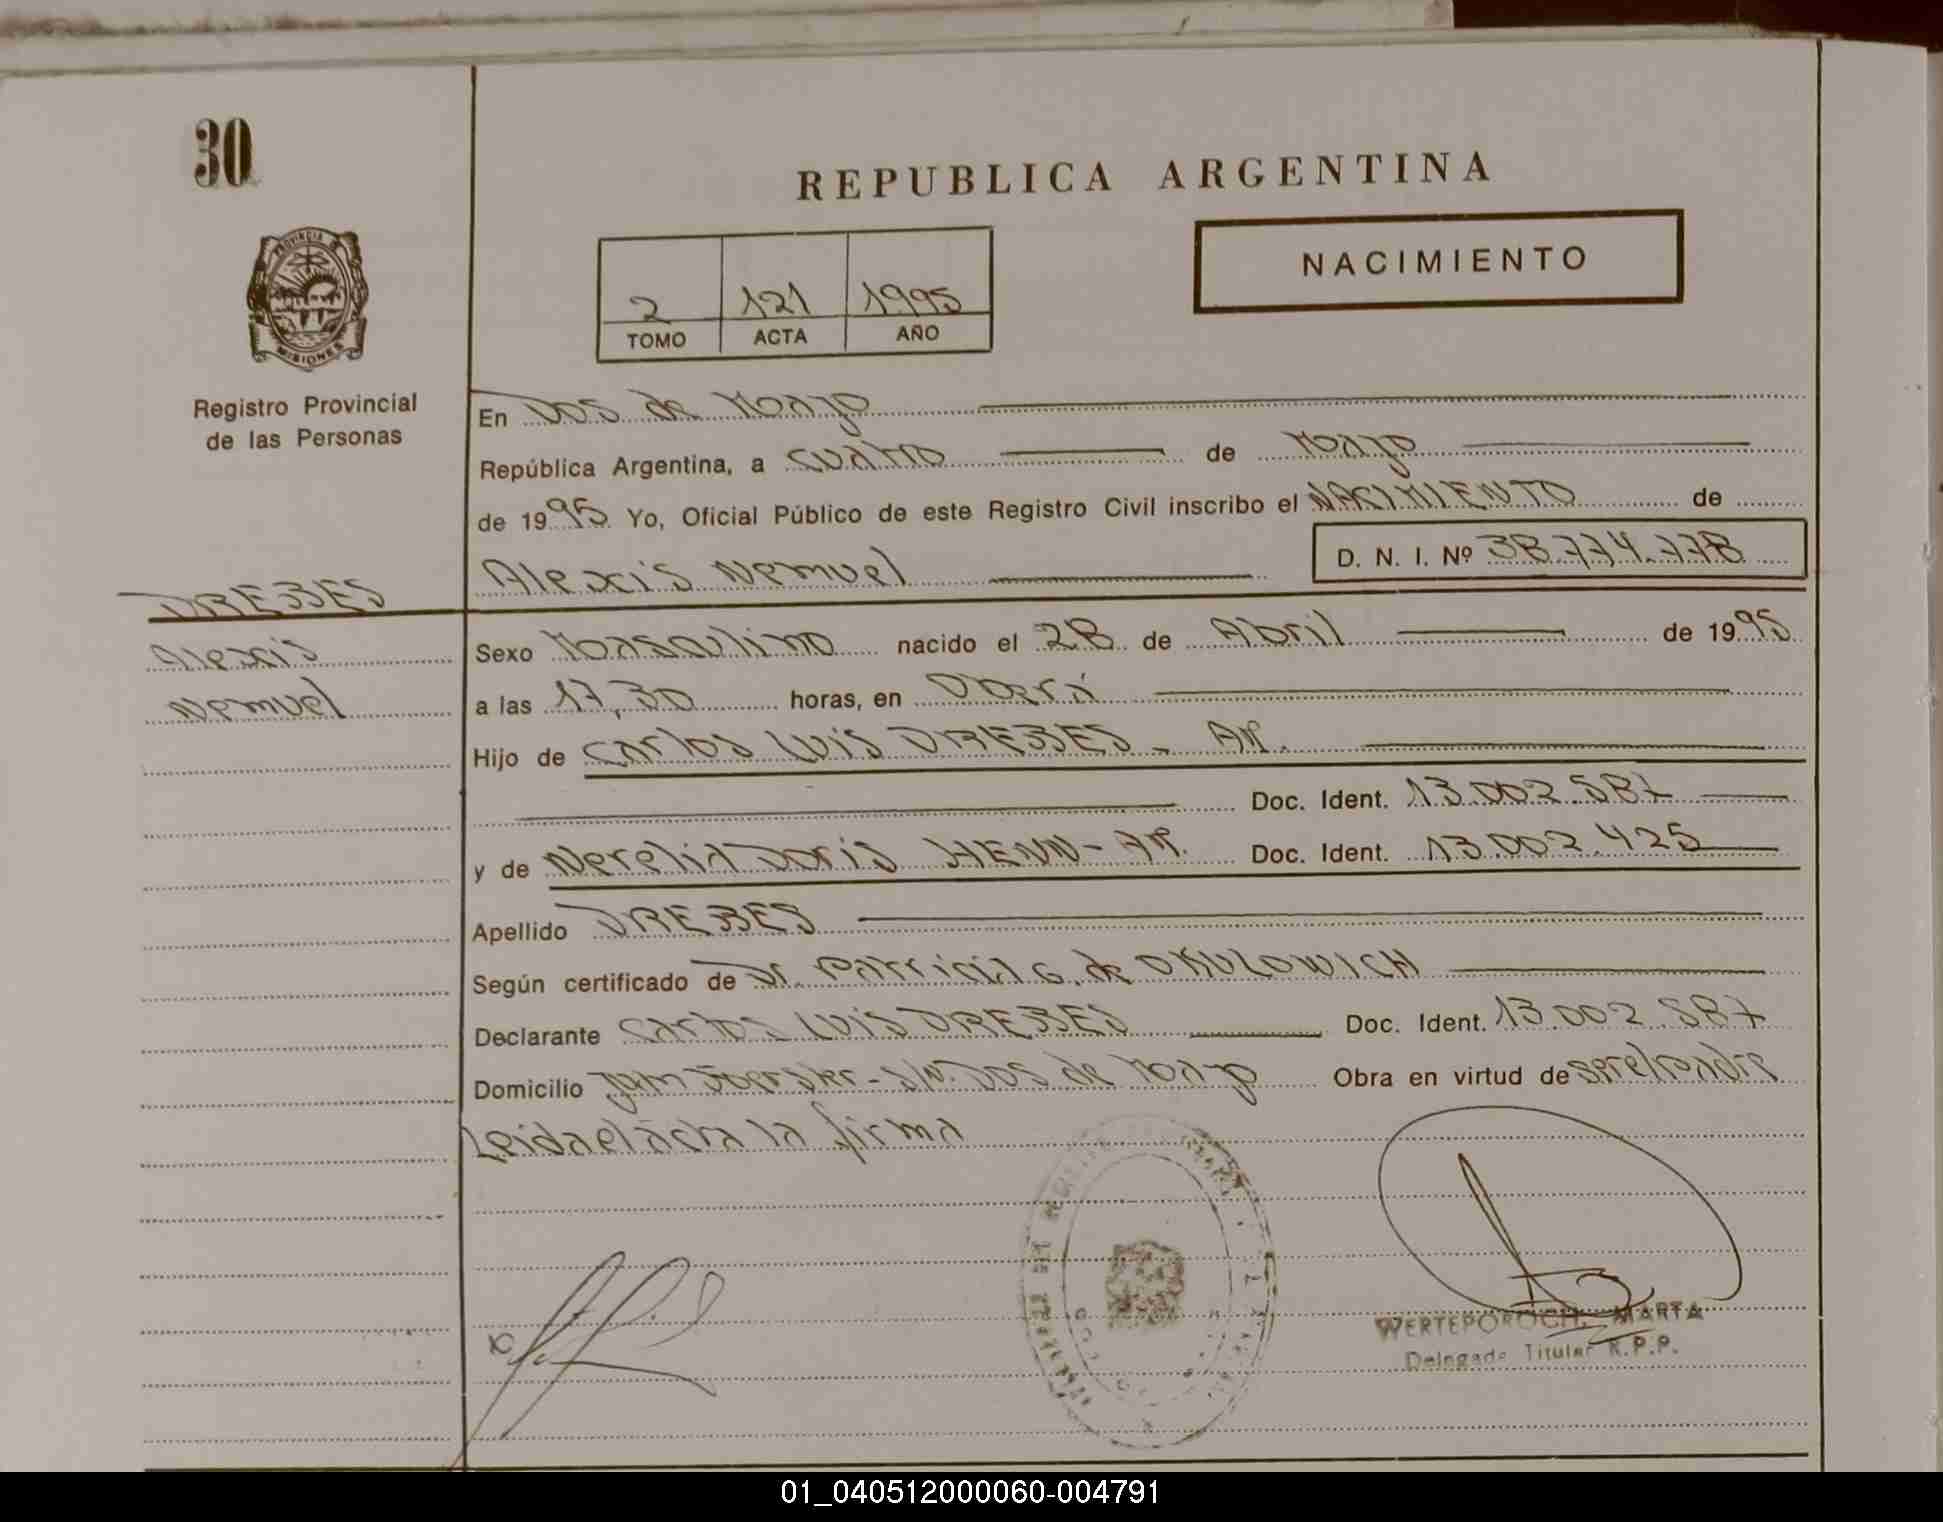 30
REPUBLICA ARGENTINA
NACIMIENTO
2 121 1995
TOMO ACTA AÑO
PROVINCIA DE
MISIONES
Registro Provincial
de las Personas
En Dos de Mayo
República Argentina, a cuatro de Mayo
de 1995 Yo, Oficial Público de este Registro Civil inscribo el NACIMIENTO de
Alexis Nemuel D. N. I. Nº 38.774.778
DREBES
Alexis
Nemuel
Sexo Masculino nacido el 28 de Abril de 1995
a las 17,30 horas, en Oberá
Hijo de Carlos Luis DREBES - Ar.
Doc. Ident. 13.002.587
y de Nerelia Doris HENN - Ar. Doc. Ident. 13.002.425
Apellido DREBES
Según certificado de Dr. Patricia G. de OKULOWICH
Declarante Carlos Luis DREBES Doc. Ident. 13.002.587
Domicilio S/N. Dos de Mayo Obra en virtud de ser el padre
Leida el acta la firma
WERTEPOROCH, MARTA
Delegada Titular R.P.P.
01_040512000060-004791